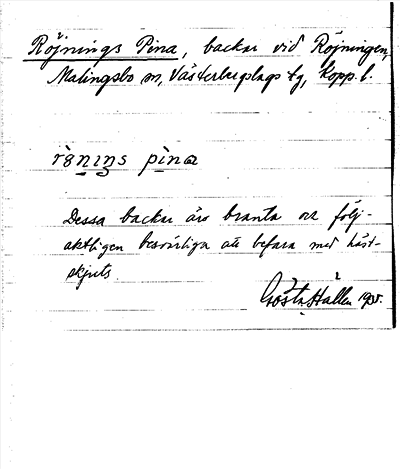 Röjnings Pina, backar vid Röjningen,
Malingsbo sn, Västerbergslags tg, Kopp. l.
rö̀nings pìna
Dessa backar äro branta och följ-
aktligen besvärliga att befara med häst-
skjuts.
Gösta Hallén 1935.